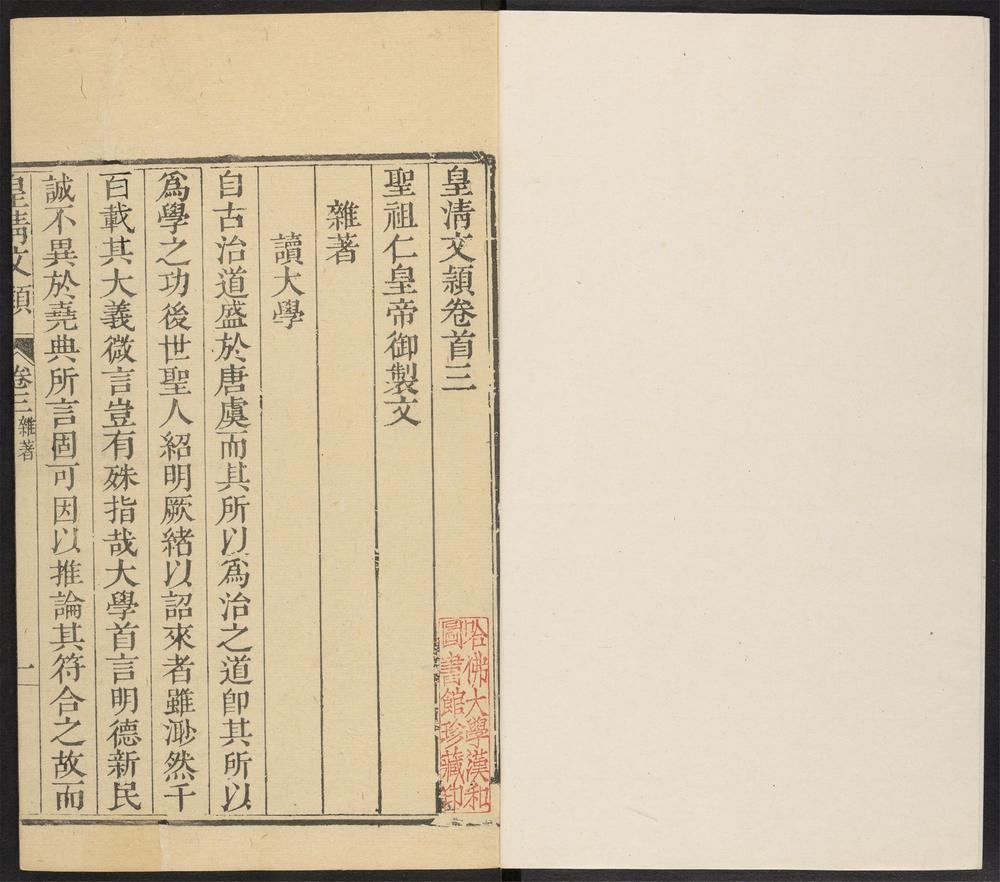 皇淸文穎卷首三
聖祖仁皇帝御製文
雜著
讀大學
自古治道盛於唐虞而其所以爲治之道卽其所以
爲學之功後世聖人紹明厥緒以詔來者雖渺然千
百載其大義微言豈有殊指哉大學首言明德新民
誠不異於堯典所言固可因以推論其符合之故而
皇淸文穎
卷三
雜著
一
哈佛大學漢和
圖書館珍藏印